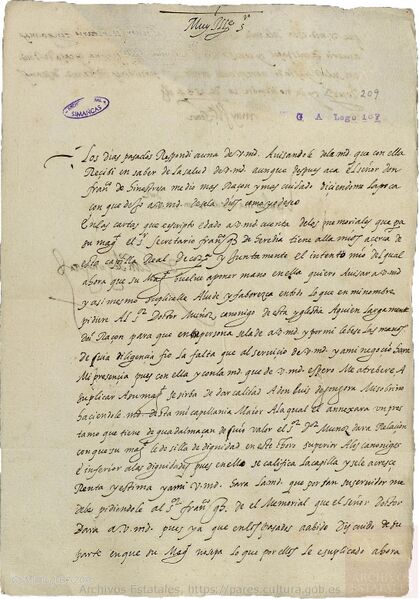 Muy Ille s^r
209
SIMANCAS
G A Lego 107
Los dias pasados Respondi a una de v. md. Avisandole de la md. que con ella
Recibi en saber de la salud de v. md. aunque despues aca el señor don
fran^co de me dio mas Raçon y mas cuidado diciendome la poca
con que dexo a v. md. dios como yo deseo
En las cartas que e escripto e dado a v. md. cuenta de los memoriales que pa
su mag^t el s^r secretario fran^co de heredia tiene alla acerca de
esta capilla Real de y juntamente el intento mio del qual
ahora que su Mag^t buelve a poner mano en ella quiero Avisar a v. md.
y asi mesmo suplicalle Ayude y faborezca en todo lo que en mi nombre
pidiere Al s^r Dotor Muñoz, canonigo de esta yglesia A quien largamente
di Raçon para que en persona se la de a v. md. y por mi le bese las manos
de cuia diligencia fio la falta que al servicio de v. md. y a mi negocio hara
Mi presencia pues con ella y con la md. que de v. md. espero Me atrebere A
suplicar A su mag^t se sirba de dar calidad A don Luis de Mi sobrino
haciendole md. desta mi capellania Maior A la qual el annexara un pres
tamo que tiene de guadalmacan de cuio valor el s^r D^or Munoz dara Relacion
con que su mag^t le de silla de dignidad en este choro superior A los canonigos
e inferior a las dignidades pues en ello se califica la capilla y se le acresce
Renta y estima y a mi v. md. hara la md. que por tan su servidor me
debe pidiendole al s^r fran^co de el Memorial que el señor dottor
Dara a v. md. pues ya que en los pasados a abido Discuido de su
parte en que su Mag^t no sepa lo que por ellos le e suplicado ahora
Archivos Estatales, https://pares.cultura.gob.es